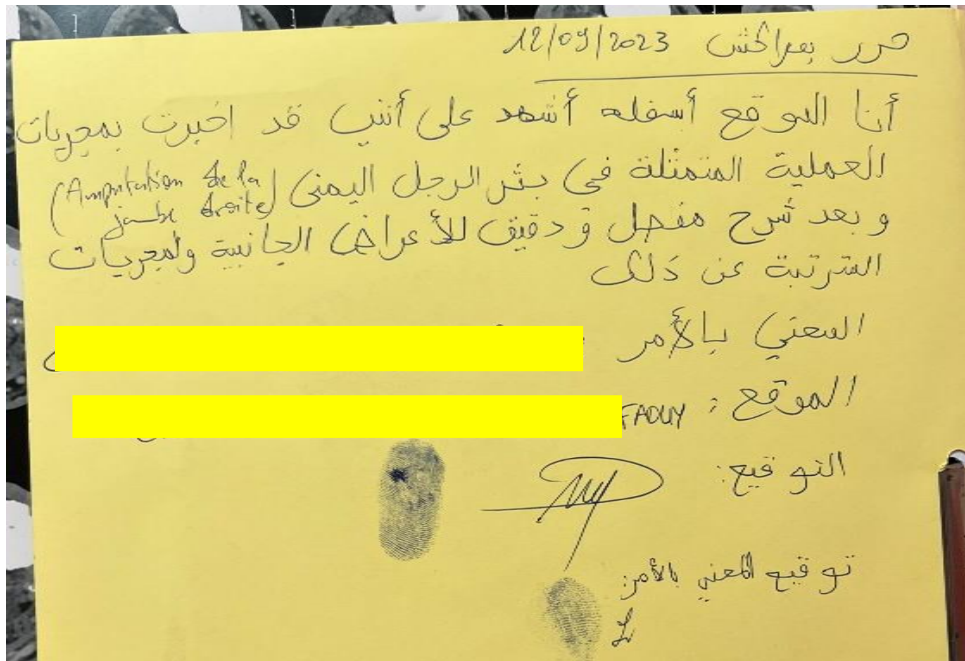 حرر بمراكش 12/09/2023
أنا الموقع أسفله أشهد على أنني قد اخبرت بمجريات
العملية المتمثلة في بتر الرجل اليمنى (Amputation de la
jambe droite)
و بعد شرح مفصل و دقيق للأعراض الجانبية ولمجريات
المترتبة عن ذلك
المعني بالأمر
الموقع : FAOUY
التوقيع:
توقيع المعني بالأمر: